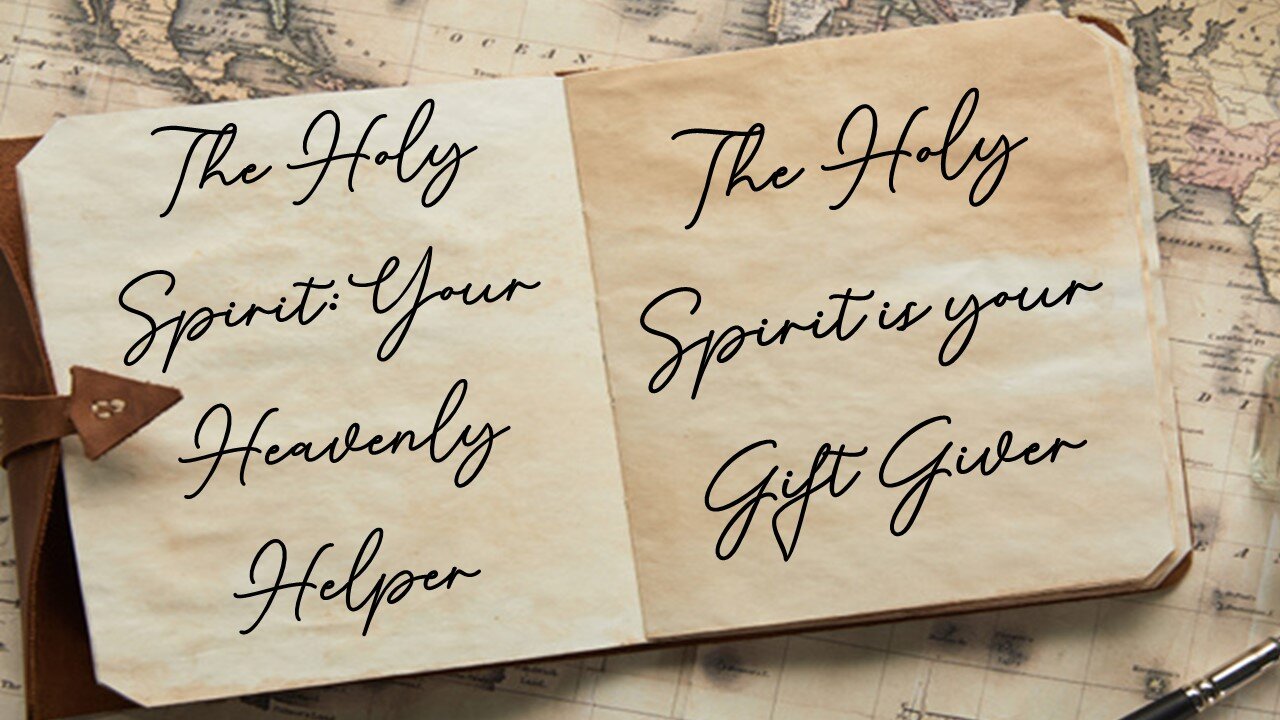 The Holy
Spirit: Your
Heavenly
Helper
The Holy
Spirit is your
Gift Giver
OCEAN